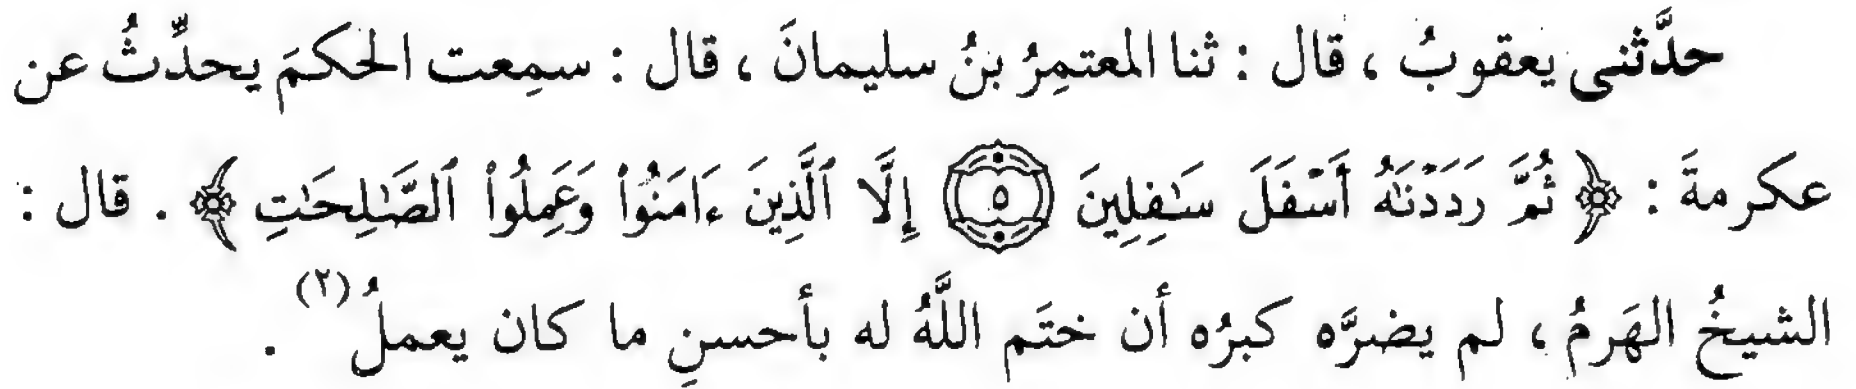 حدَّثنى يعقوبُ ، قال : ثنا المعتمِرُ بنُ سليمانَ ، قال : سمِعت الحكمَ يحدِّثُ عن
عكرمةَ : ﴿ ثُمَّ رَدَدْنَٰهُ أَسْفَلَ سَٰفِلِينَ ﴿٥﴾ إِلَّا ٱلَّذِينَ ءَامَنُوا۟ وَعَمِلُوا۟ ٱلصَّٰلِحَٰتِ ﴾ . قال :
الشيخُ الهَرمُ ، لم يضرَّه كبرُه أن ختَم اللَّهُ له بأحسنِ ما كان يعملُ (٢) .